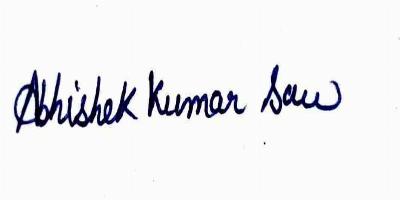 Abhishek Kumar Saw